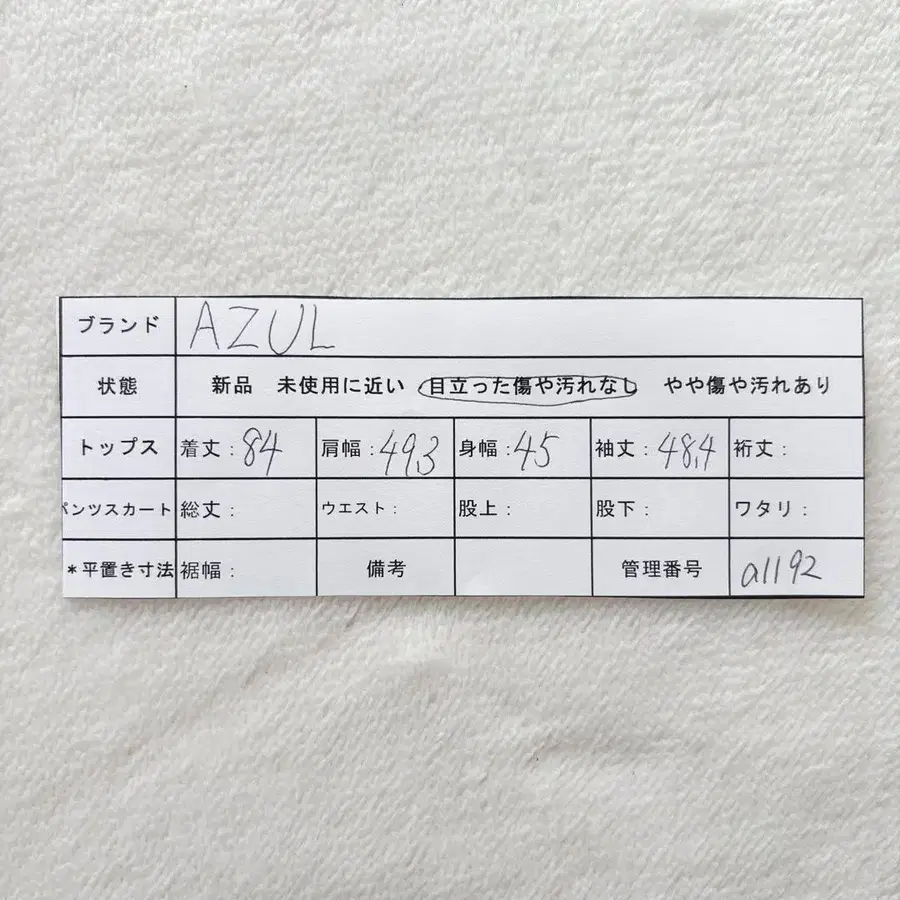 ブランド AZUL
状態 新品 未使用に近い 目立った傷や汚れなし やや傷や汚れあり
トップス 着丈：84 肩幅：49.3 身幅：45 袖丈：48.4 裄丈：
パンツスカート 総丈： ウエスト： 股上： 股下： ワタリ：
＊平置き寸法 裾幅： 備考 管理番号 a1192